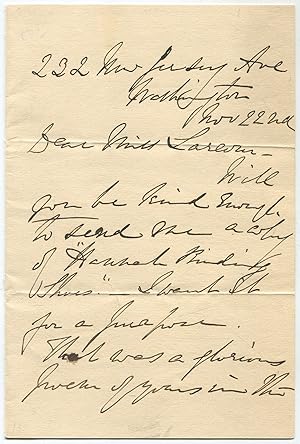 232 New Jersey Ave
Washington
Nov 22nd
Dear Miss Larcom -
Will
you be kind enough
to send me a copy
of "Hannah Binding
Shoes." I want it
for a purpose.
That was a glorious
poem of yours in the